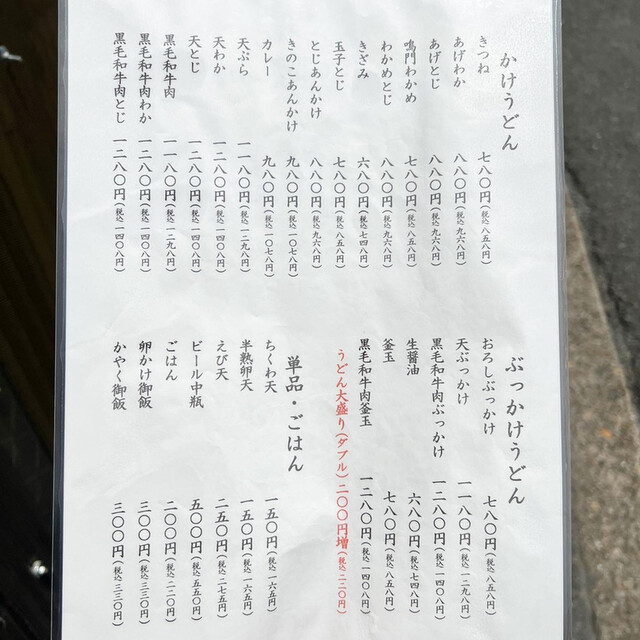 かけうどん
きつね 七八〇円(税込八五八円)
あげわか 八八〇円(税込九六八円)
あげとじ 八八〇円(税込九六八円)
鳴門わかめ 七八〇円(税込八五八円)
わかめとじ 八八〇円(税込九六八円)
きざみ 六八〇円(税込七四八円)
玉子とじ 七八〇円(税込八五八円)
とじあんかけ 八八〇円(税込九六八円)
きのこあんかけ 九八〇円(税込一〇七八円)
カレー 九八〇円(税込一〇七八円)
天ぷら 一一八〇円(税込一二九八円)
天わか 一二八〇円(税込一四〇八円)
天とじ 一二八〇円(税込一四〇八円)
黒毛和牛肉 一一八〇円(税込一二九八円)
黒毛和牛肉わか 一二八〇円(税込一四〇八円)
黒毛和牛肉とじ 一二八〇円(税込一四〇八円)
ぶっかけうどん
おろしぶっかけ 七八〇円(税込八五八円)
天ぶっかけ 一一八〇円(税込一二九八円)
黒毛和牛肉ぶっかけ 一二八〇円(税込一四〇八円)
生醤油 六八〇円(税込七四八円)
釜玉 七八〇円(税込八五八円)
黒毛和牛肉釜玉 一二八〇円(税込一四〇八円)
うどん大盛り(ダブル)二〇〇円増(税込二二〇円)
単品・ごはん
ちくわ天 一五〇円(税込一六五円)
半熟卵天 一五〇円(税込一六五円)
えび天 二五〇円(税込二七五円)
ビール中瓶 五〇〇円(税込五五〇円)
ごはん 二〇〇円(税込二二〇円)
卵かけ御飯 三〇〇円(税込三三〇円)
かやく御飯 三〇〇円(税込三三〇円)